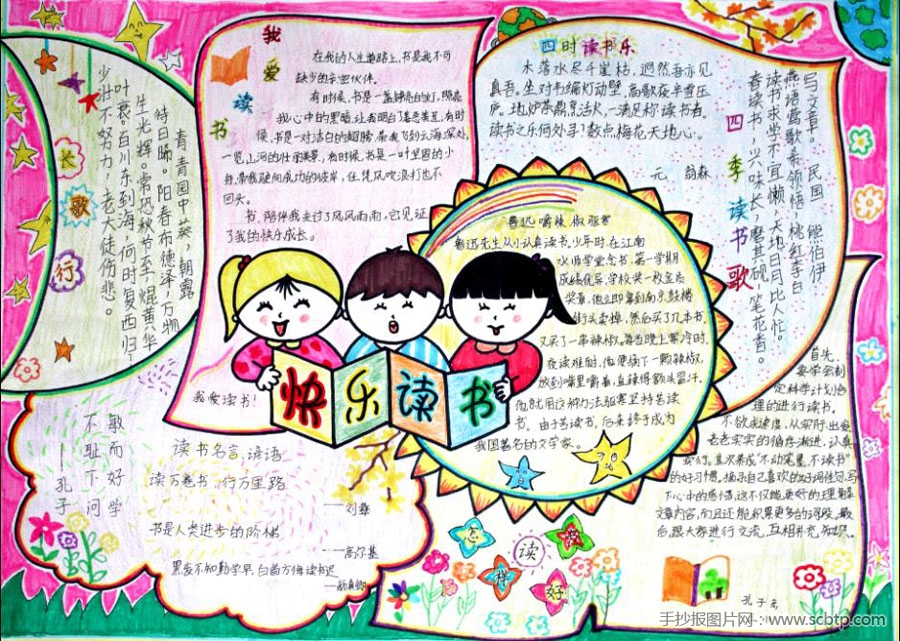 长歌行
青青园中葵,朝露
特日晞。阳春布德泽,万物
生光辉。常恐秋节至,焜黄华
叶衰。百川东到海,何时复西归?
少壮不努力,老大徒伤悲。
我爱读书
在我的人生道路上,书是我不可
缺少的亲密伙伴。
有时候,书是一盏明亮的灯,照亮
我心中的黑暗,让我明白了善恶美丑,有时
候,书是一对洁白的翅膀,带我飞到云海深处,
一览山河的壮丽美景,有时候,书是一叶坚固的小
舟,带我驶向成功的彼岸,任凭风吹浪打也不
回头。
书,陪伴我走过了风风雨雨,它见证
了我的快乐成长。
我爱读书!
四时读书乐
木落水尽千崖枯,迥然吾亦见
真吾。坐对韦编灯动壁,高歌夜半雪压
庐。地炉茶鼎烹活火,一清足称读书者。
读书之乐何处寻?数点梅花天地心。
元。翁森
四季读书歌
春读书,兴味长,磨其砚,笔花香。
读书求学不宜懒,天地日月比人忙。
燕语莺歌希领悟,桃红李白
写文章。 民国 熊伯伊
鲁迅嚼辣椒驱寒
鲁迅先生从小认真读书,少年时,在江南
水师学堂念书,第一学期
成绩优异,学校奖一枚金质
奖章,他立即拿到南京鼓楼
街头卖掉,然后买了几本书,
又买了一串辣椒,每当晚上寒冷时,
夜读难耐,他便摘下一颗辣椒,
放到嘴里嚼着,直辣得额头冒汗。
他就用这种办法驱寒坚持苦读
书,由于苦读书,后来终于成为
我国著名的文学家。
快乐读书
敏而好学
不耻下问
——孔子
读书名言、谚语
读万卷书,行万里路
——刘彝
书是人类进步的阶梯
——高尔基
黑发不知勤学早,白首方悔读书迟
——颜真卿
怎样读好
首先,
要学会制
定科学计划,合
理的进行读书,
不欲求速度,从实际出发,
老老实实的循序渐进,认真
去行。其次养成"不动笔墨,不读书"
的好习惯,摘录自己喜欢的好词佳句,写
下心中的感悟,这不仅能更好的理解
文章内容,而且还能积累更多的词段,最
后,跟大家进行交流,互相补充
手抄报图片网:www.scbtp.com